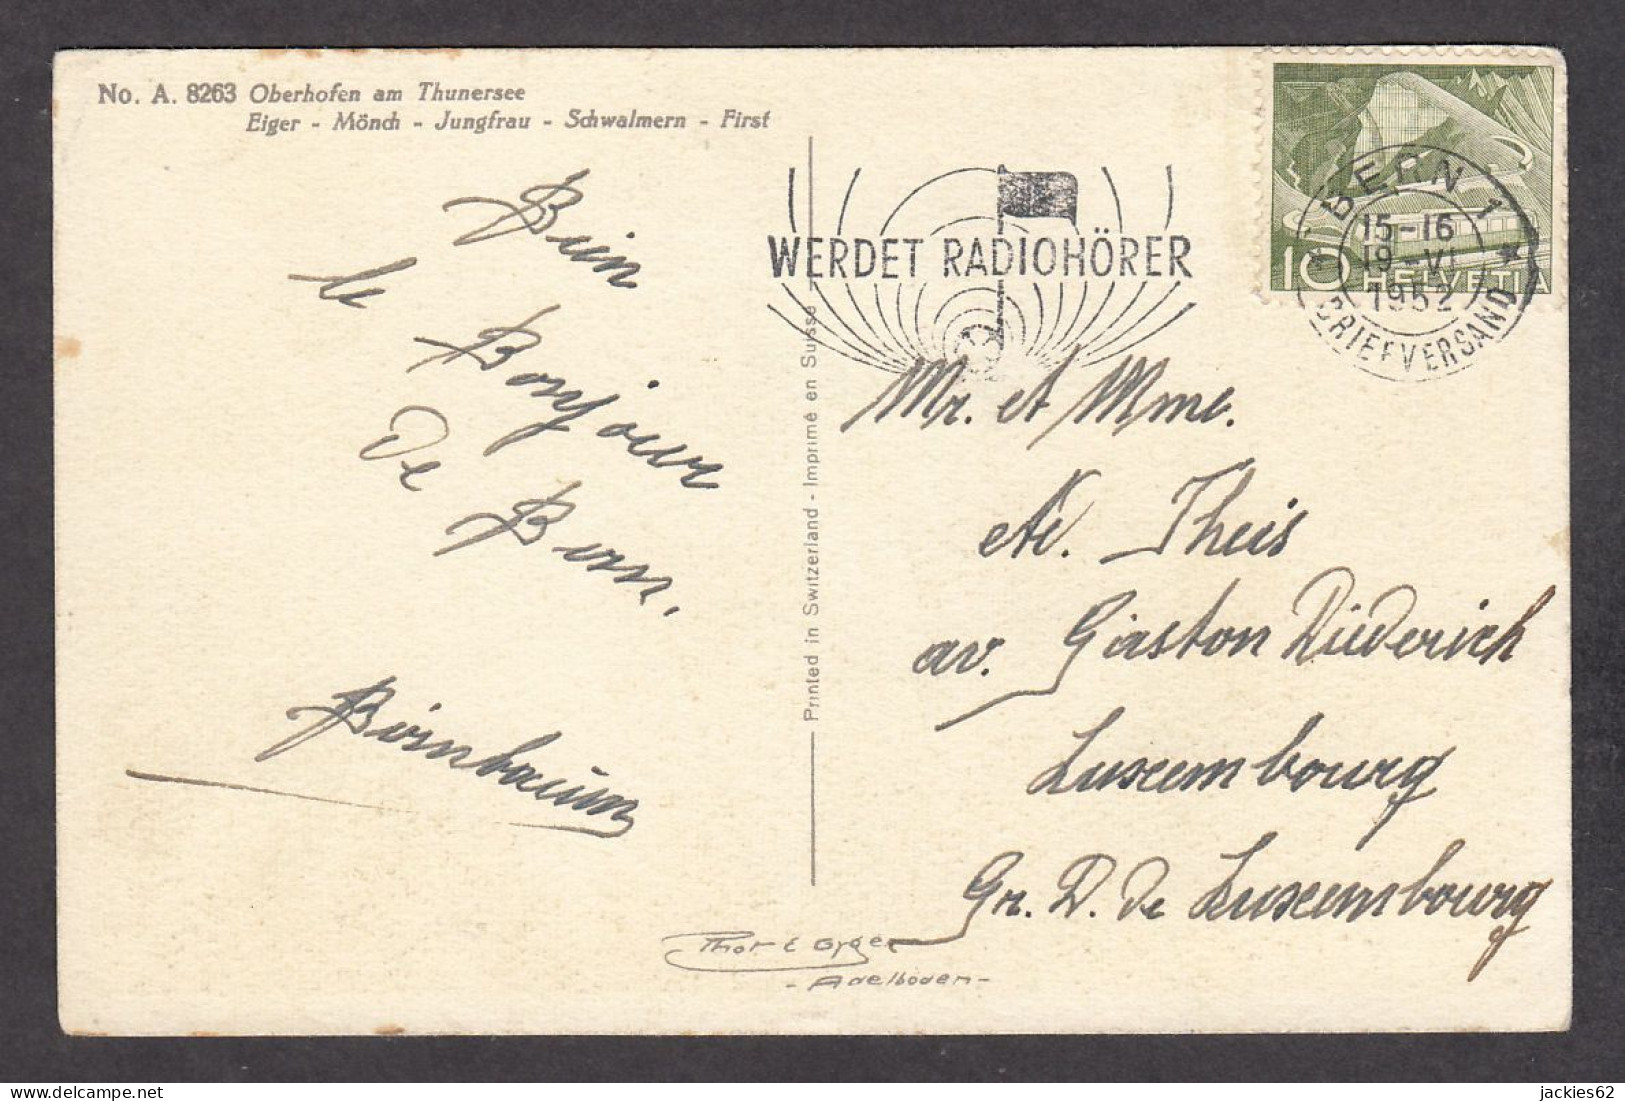 No. A. 8263 Oberhofen am Thunersee
Eiger - Mönch - Jungfrau - Schwalmern - First
Bien
le Bonjour
de Bern.
Birnbaum
Printed in Switzerland - Imprimé en Suisse
WERDET RADIOHÖRER
BERN 1
15-16
19-VI
1952
BRIEFVERSAND
10 HELVETIA
Mr. et Mme.
N. Theis
av. Gaston Diederich
Luxembourg
Gr. D. de Luxembourg
Phot E Gyger
- Adelboden -
jackies62